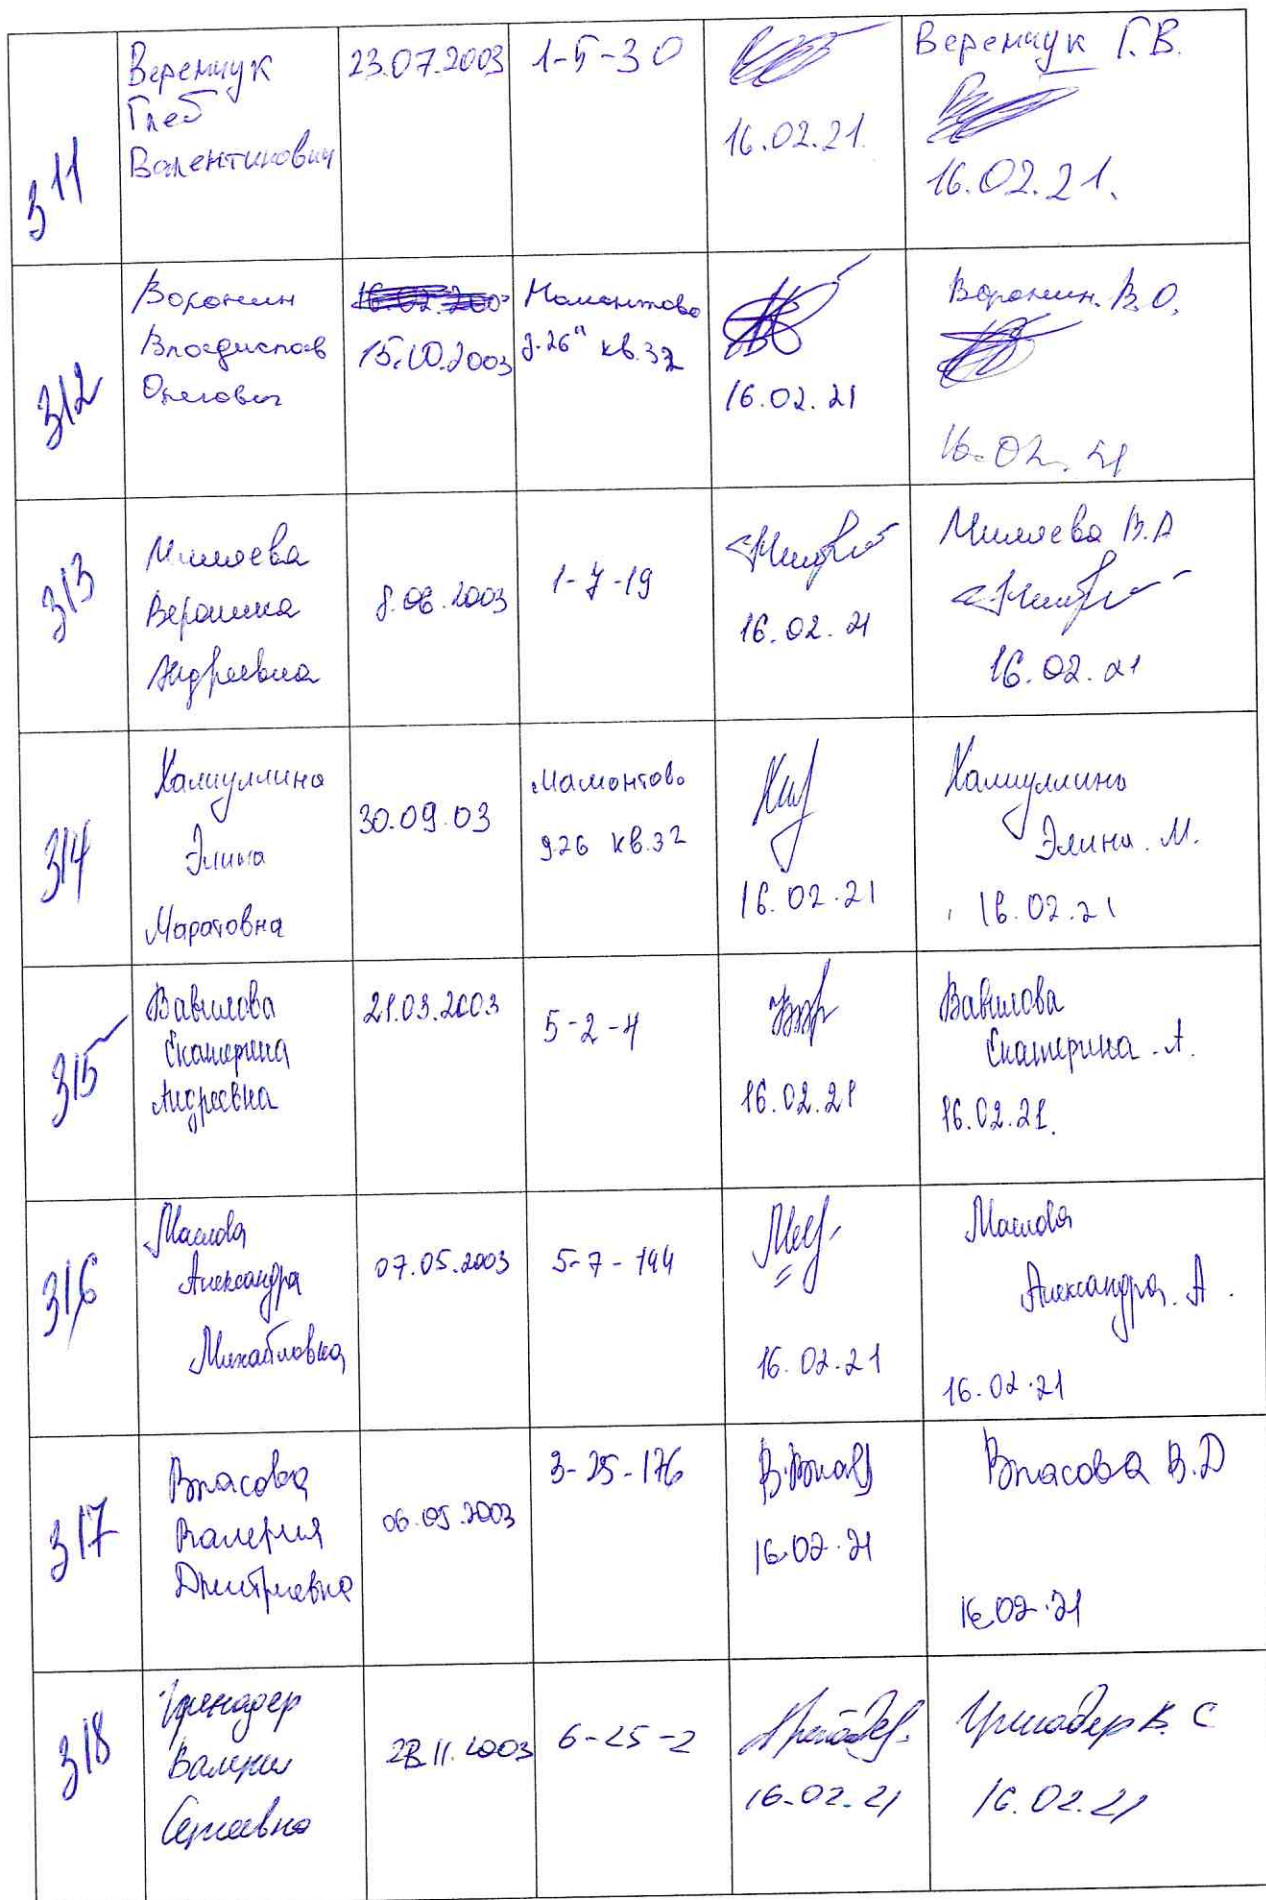 311
Веремчук
Глеб
Валентинович
23.07.2003
1-5-30
16.02.21.
Веремчук Г.В.
16.02.21.
312
Воронин
Владислав
Олегович
15.10.2003
Мамонтова
д.26" кв.32
16.02.21
Воронин. В.О.
16.02.21
313
Миляева
Вероника
Андреевна
8.06.2003
1-7-19
16.02.21
Миляева В.А
16.02.21
314
Халиуллина
Элина
Маратовна
30.09.03
Мамонтово
д26 кв.32
16.02.21
Халиуллина
Элина. М.
16.02.21
315
Вавилова
Екатерина
Андреевна
21.03.2003
5-2-4
16.02.21
Вавилова
Екатерина. А.
16.02.21.
316
Маслова
Александра
Михайловна
07.05.2003
5-7-144
16.02.21
Маслова
Александра. А.
16.02.21
317
Власова
Валерия
Дмитриевна
06.05.2003
3-25-176
16.02.21
Власова В.Д
16.02.21
318
Гренадер
Валерия
Сергеевна
6-25-2
16.02.21
Гренадер В. С
16.02.21